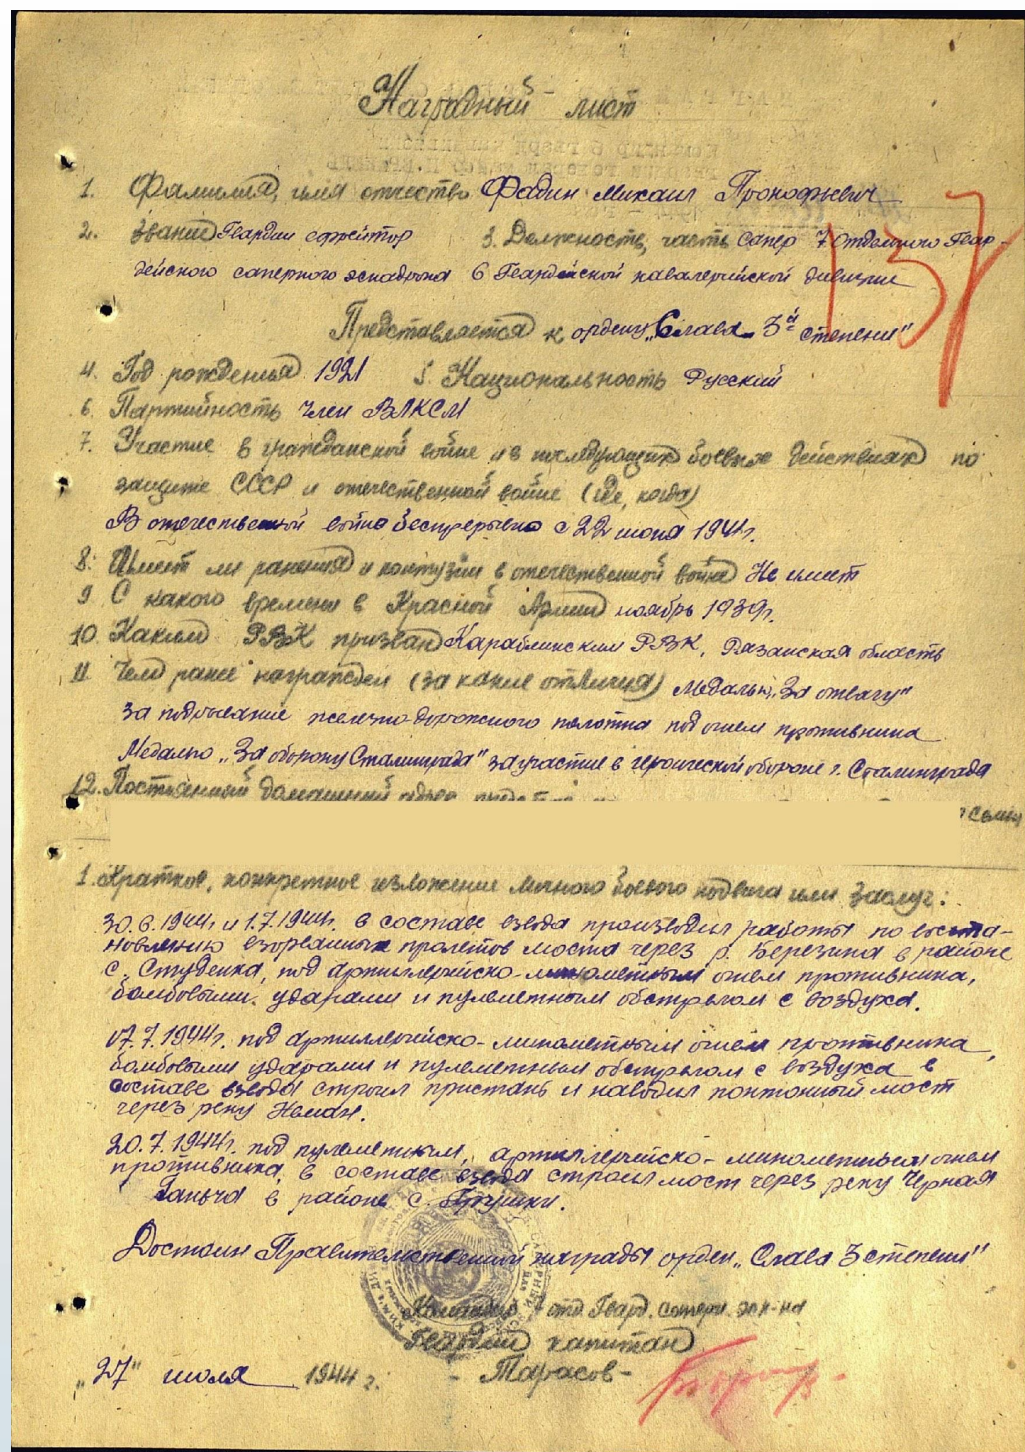 Наградный лист
1. Фамилия, имя отчество Фадин Михаил Прокофьевич
2. Звание Гвардии ефрейтор 3. Должность, часть Сапер 7 отдельного Гвар-
дейского саперного эскадрона 6 Гвардейской кавалерийской дивизии
137
Представляется к ордену „Слава 3й степени"
4. Год рожденья 1921 5. Национальность Русский
6. Партийность член ВЛКСМ
7. Участие в гражданской войне и в последующих боевых действиях по
защите СССР и отечественной войне (где, когда)
В отечественной войне беспрерывно с 22 июня 1941г.
8. Имеет ли ранения и контузии в отечественной войне Не имеет
9 С какого времени в Красной Армии ноябрь 1939г.
10. Каким РВК призван Кораблинским РВК, Рязанская область
11 Чем ранее награжден (за какие отличия) Медалью „За отвагу"
за подрывание железно-дорожного полотна под огнем противника
Медалью „За оборону Сталинграда" за участие в героической обороне г. Сталинграда
12. Постоянный домашний адрес
семьи
1. Краткое, конкретное изложение личного боевого подвига или заслуг:
30.6.1944г. и 1.7.1944г. в составе взвода производил работы по восста-
новлению взорванных пролетов моста через р. Березина в районе
с. Студенка, под артиллерийско-минометным огнем противника,
бомбовыми ударами и пулеметным обстрелом с воздуха.
17.7.1944г. под артиллерийско-минометным огнем противника,
бомбовыми ударами и пулеметным обстрелом с воздуха в
составе взвода строил пристань и наводил понтонный мост
через реку Неман.
20.7.1944г. под пулеметным, артиллерийско-минометным огнем
противника, в составе взвода строил мост через реку Черная
Ганьча в районе с. Грушки.
Достоин Правительственной награды орден „Слава 3 степени"
Командир 7 отд Гвард. саперн. эск-на
Гвардии капитан
- Тарасов -
„27" июля 1944 г.